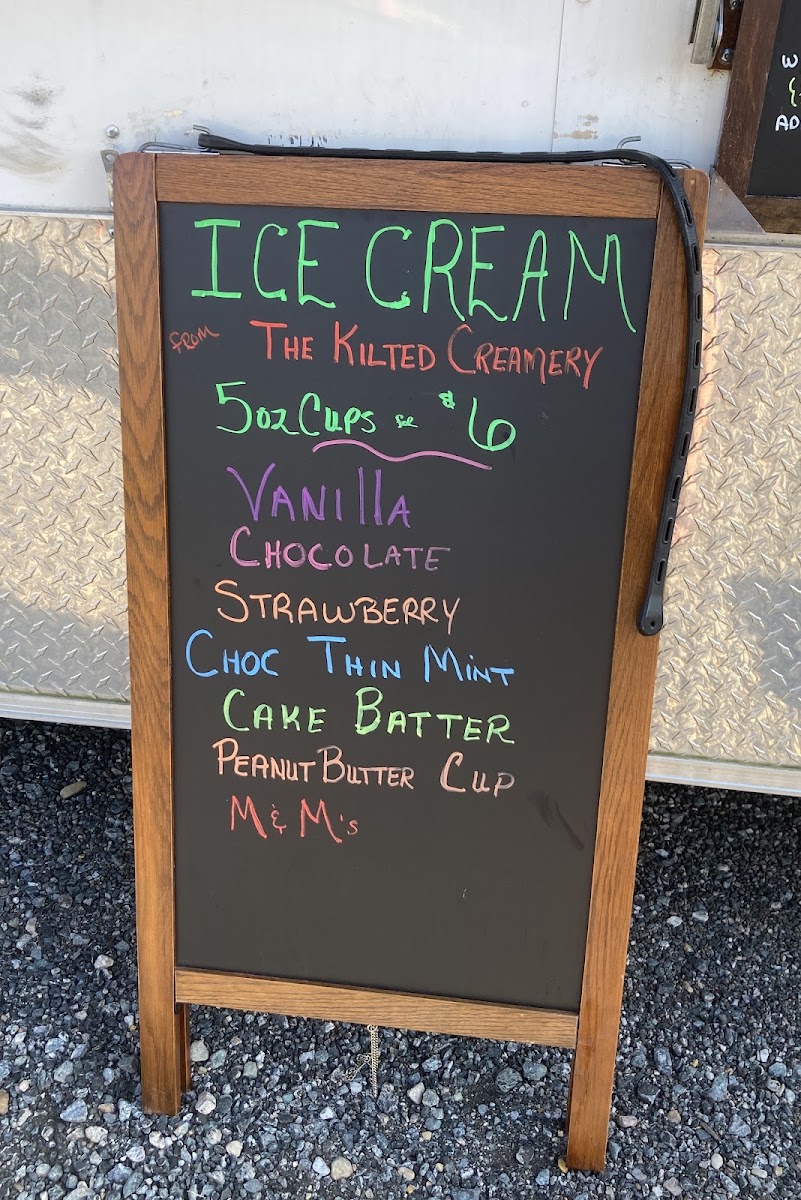 ICE CREAM
FROM THE KILTED CREAMERY
5oz CUPS $6
VANIllA
CHOCOLATE
STRAWBERRY
CHOC THIN MINT
CAKE BATTER
PEANUT BUTTER CUP
M & M's
W
&
AD